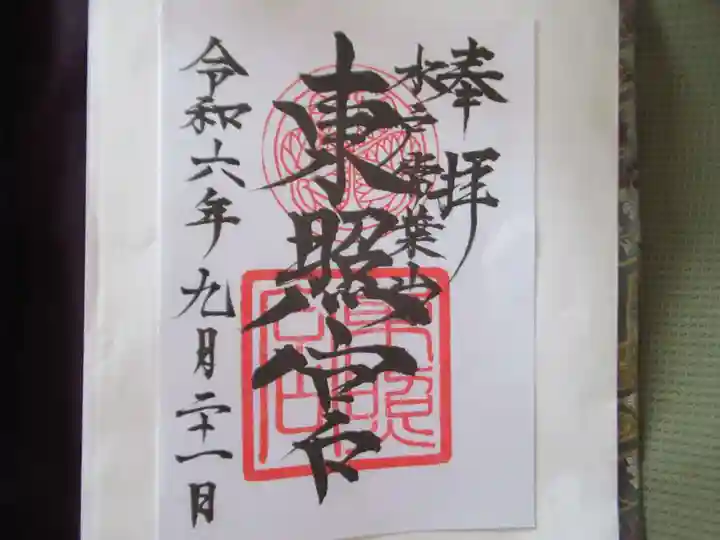 奉拝
水戸常葉山
東照宮
令和六年九月二十一日